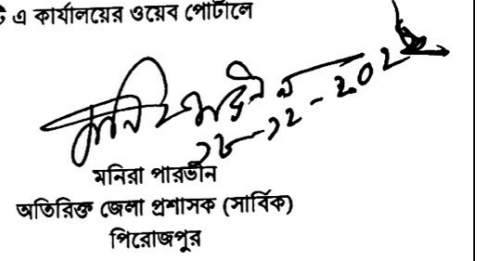 এ কার্যালয়ের ওয়েব পোর্টালে
মনিরা পারভীন
অতিরিক্ত জেলা প্রশাসক (সার্বিক)
পিরোজপুর